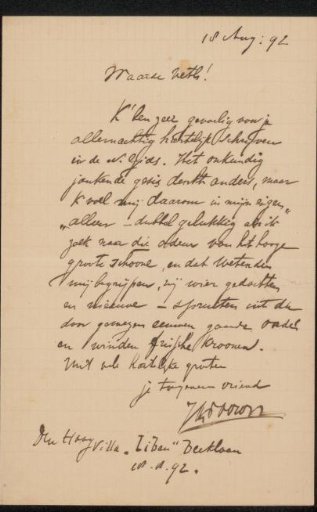 18 Aug: 92
Waarde Veth!
K' ben zeer gevoelig voor je
allemachtig hartelijk schrijven
in de N. Gids. Het onkundig
jankende denkt anders, maar
k voel mij daarom in mijn eigen
"alleen" – dubbel gelukkig als ik
zoek naar die van het hooge
groote schoone, en dat wetenden
mij begrijpen, wier gedachten
en nieuwe – spruiten uit de
door eeuwen
en winden frissche kroonen.
Met vele hartelijke groeten
je toegenegen vriend
JThToorop
Den Haag Villa "Eiben" Beeklaan
18.8.92.